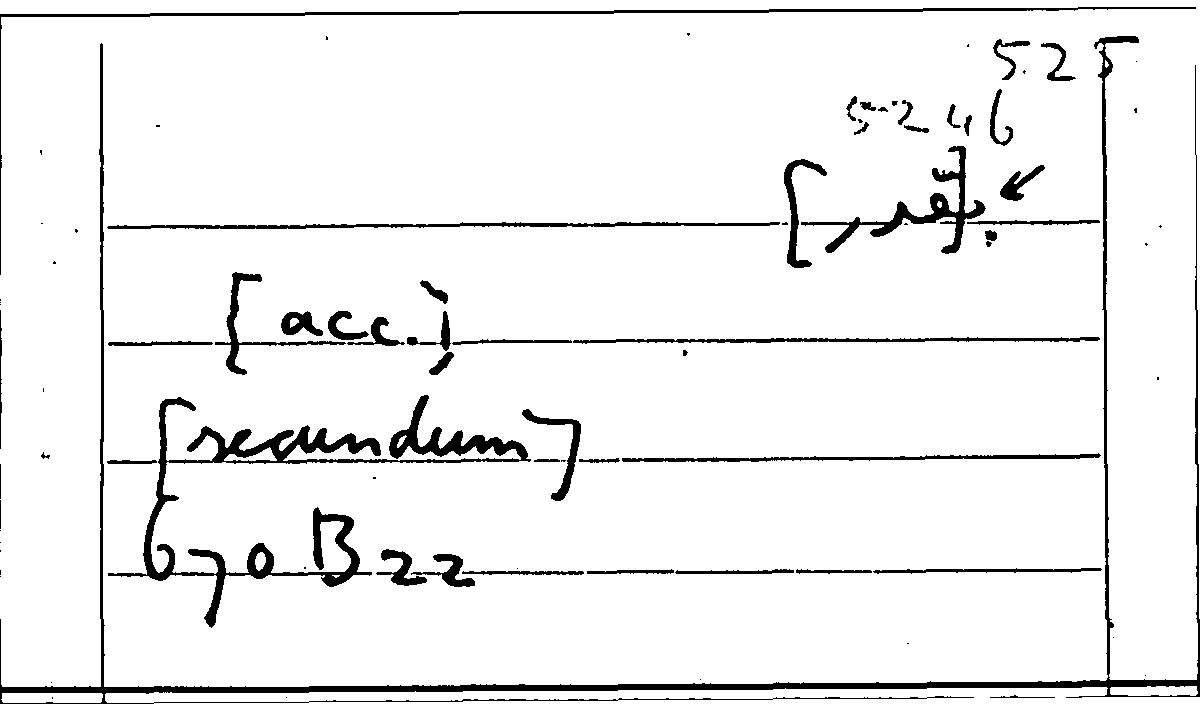 525
5246
[acc.]
[secundum]
670 B22